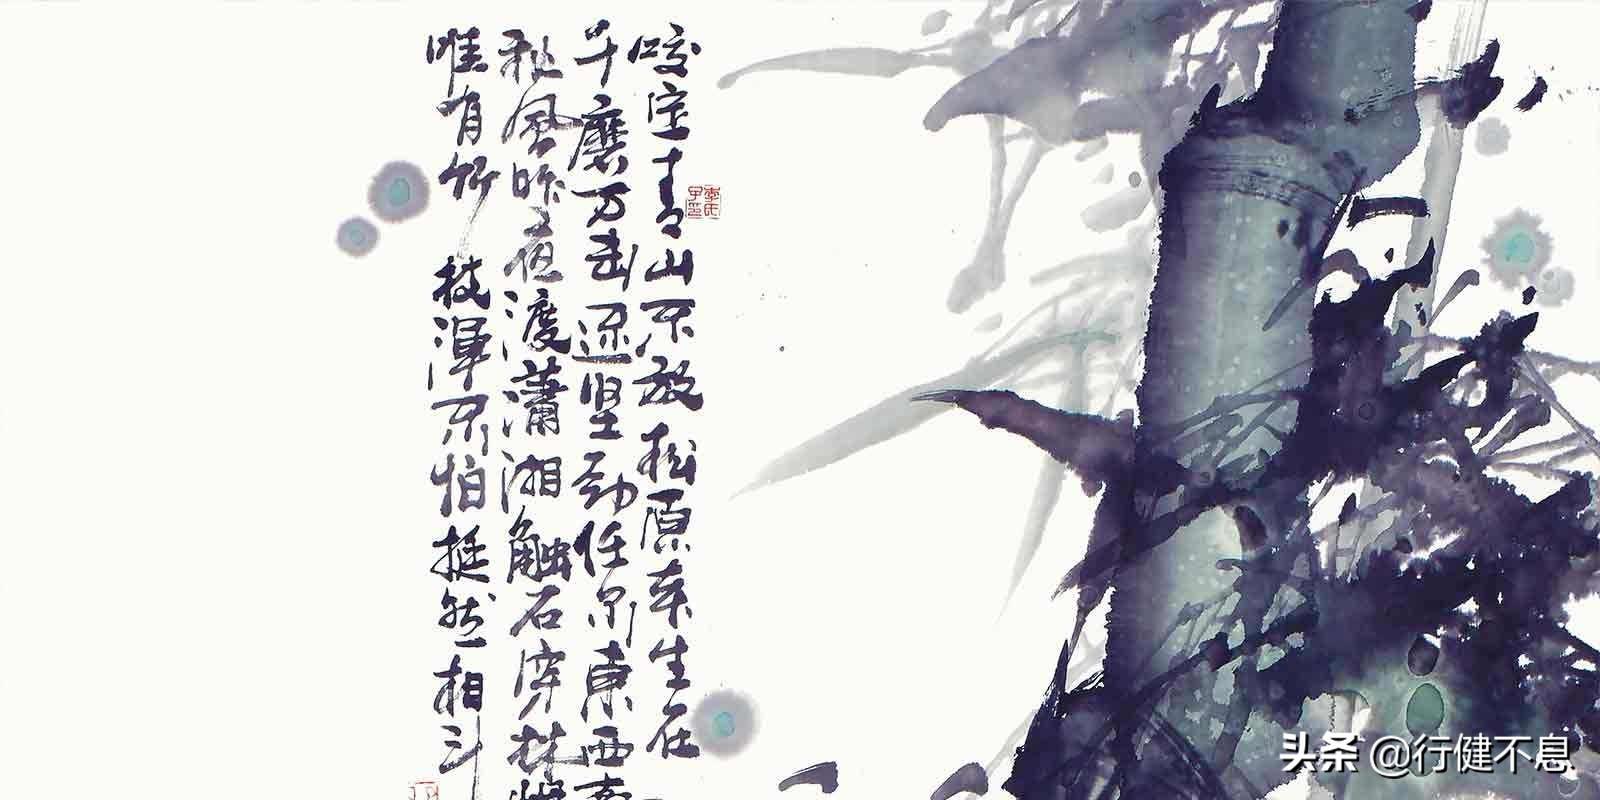 咬定青山不放松原来生在
千磨万击还坚劲任尔東西南
秋风昨夜渡瀟湘触石穿林
唯有竹枝渾不怕挺然相斗
头条 @行健不息